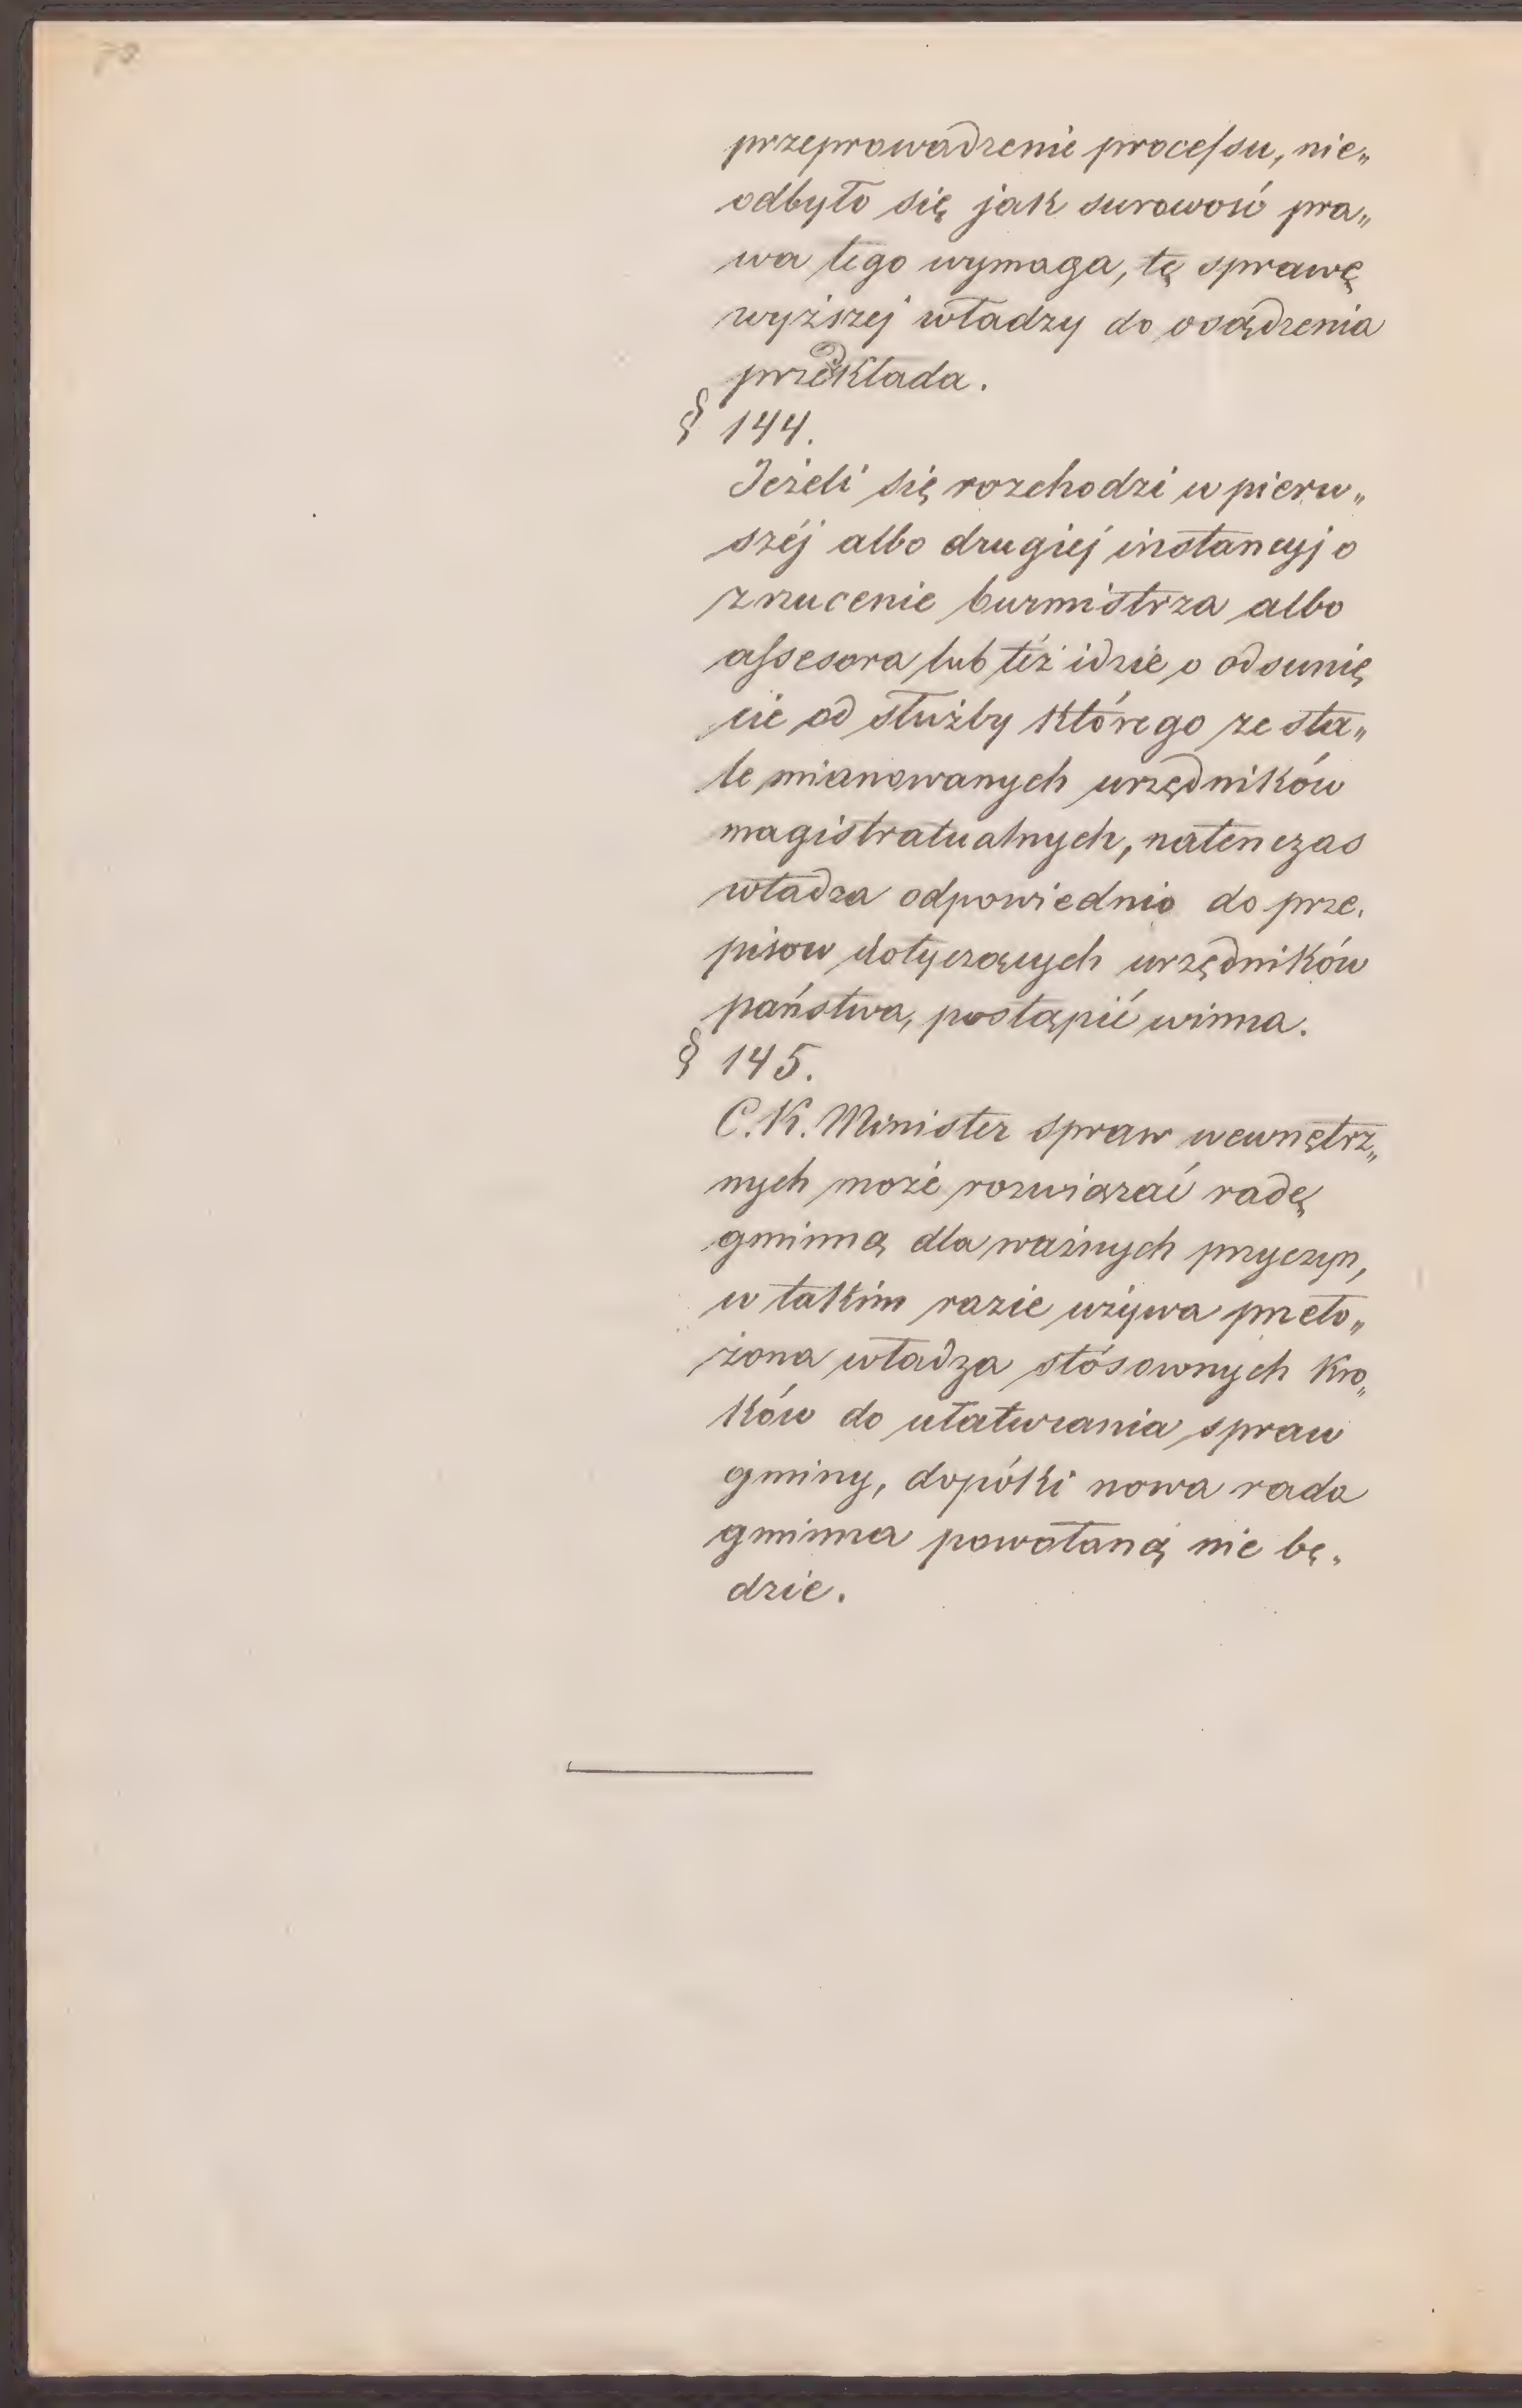 70
przeprowadzenie processu, nie„
odbyło się jak surowość pra„
wa tego wymaga, tę sprawę
wyższej władzy do osądzenia
przedkłada.
§ 144.
Jeżeli się rozchodzi w pierw„
széj albo drugiéj instancyj o
zrzucenie burmistrza albo
assesora lub też idzie o odsunię
cie od służby którego ze sta„
le mianowanych urzędników
magistratualnych, natenczas
władza odpowiednio do prze„
pisow dotyczących urzędników
państwa, postąpić winna.
§ 145.
C. K. Minister spraw wewnętrz„
nych może rozwiązać radę
gminną dla ważnych przyczyn,
w takim razie używa przeło„
żona władza stósownych kro„
ków do ułatwiania spraw
gminy, dopóki nowa rada
gminna powołaną nie bę„
dzie.